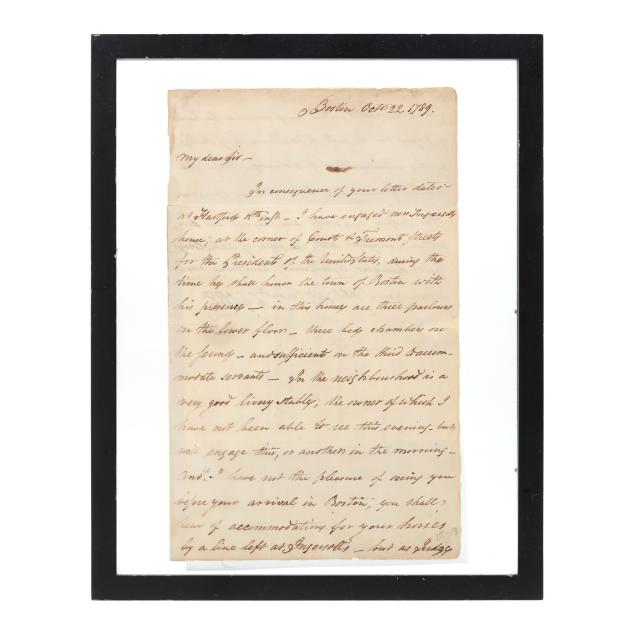 Boston Octr. 22. 1789.
My dear Sir —
In consequence of your letter dated
at Hartford 18th inst — I have engaged Mrs Ingersolls
house, at the corner of Court & Tremont streets
for the President of the United States, during the
time he shall honor the town of Boston with
his presence — in this house are three parlours
on the lower floor — three bed chambers on
the second — and sufficient on the third to accom-
modate servants — In the neighbourhood is a
very good livery stable, the owner of which I
have not been able to see this evening - but
will engage this, or another in the morning —
And if I have not the pleasure of seeing you
before your arrival in Boston, you shall
hear of accommodations for your horses
by a line left at Ingersoll's — but as Judge